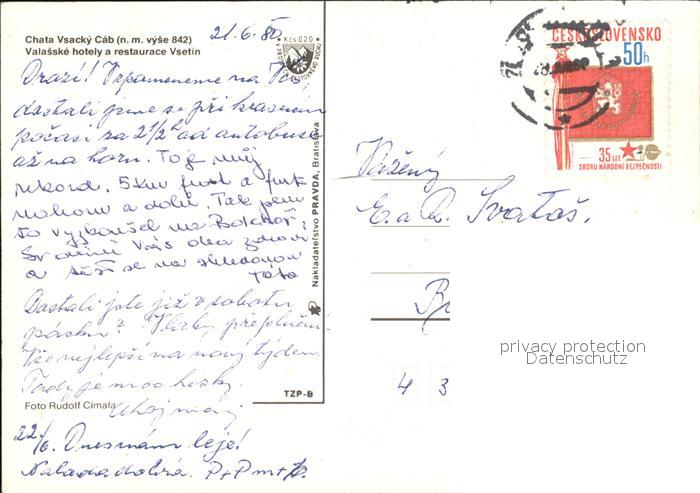 Chata Vsacký Cáb (n. m. výše 842)
Valašské hotely a restaurace Vsetín
21.6.80
Kčs 0,20
Drazí! Vzpomeneme na Vás,
dostali jsme se při krásném
počasí za 2 1/2 h od autobusu
až na horu. To je můj
rekord. 5 km furt a furt
nahoru a dolů. Tak jsem
to vyzkoušel na
Vás oba zdraví
a těší se na shledanou
táta
Dostali jste již v sobotu
pásku? Vlaky přeplněné.
Vše nejlepší na nový týden.
Tady je moc hezky.
Ahoj
Foto Rudolf Cimala
22/6. Dnes nám leje!
Nálada dobrá. P+P m+t
TZP-B
Nakladatelství PRAVDA, Bratislava
ČESKOSLOVENSKO
50h
35 LET
SBORU NÁRODNÍ BEZPEČNOSTI
Vážený
E. a R. Svatoš.
Br
4 3
privacy protection
Datenschutz